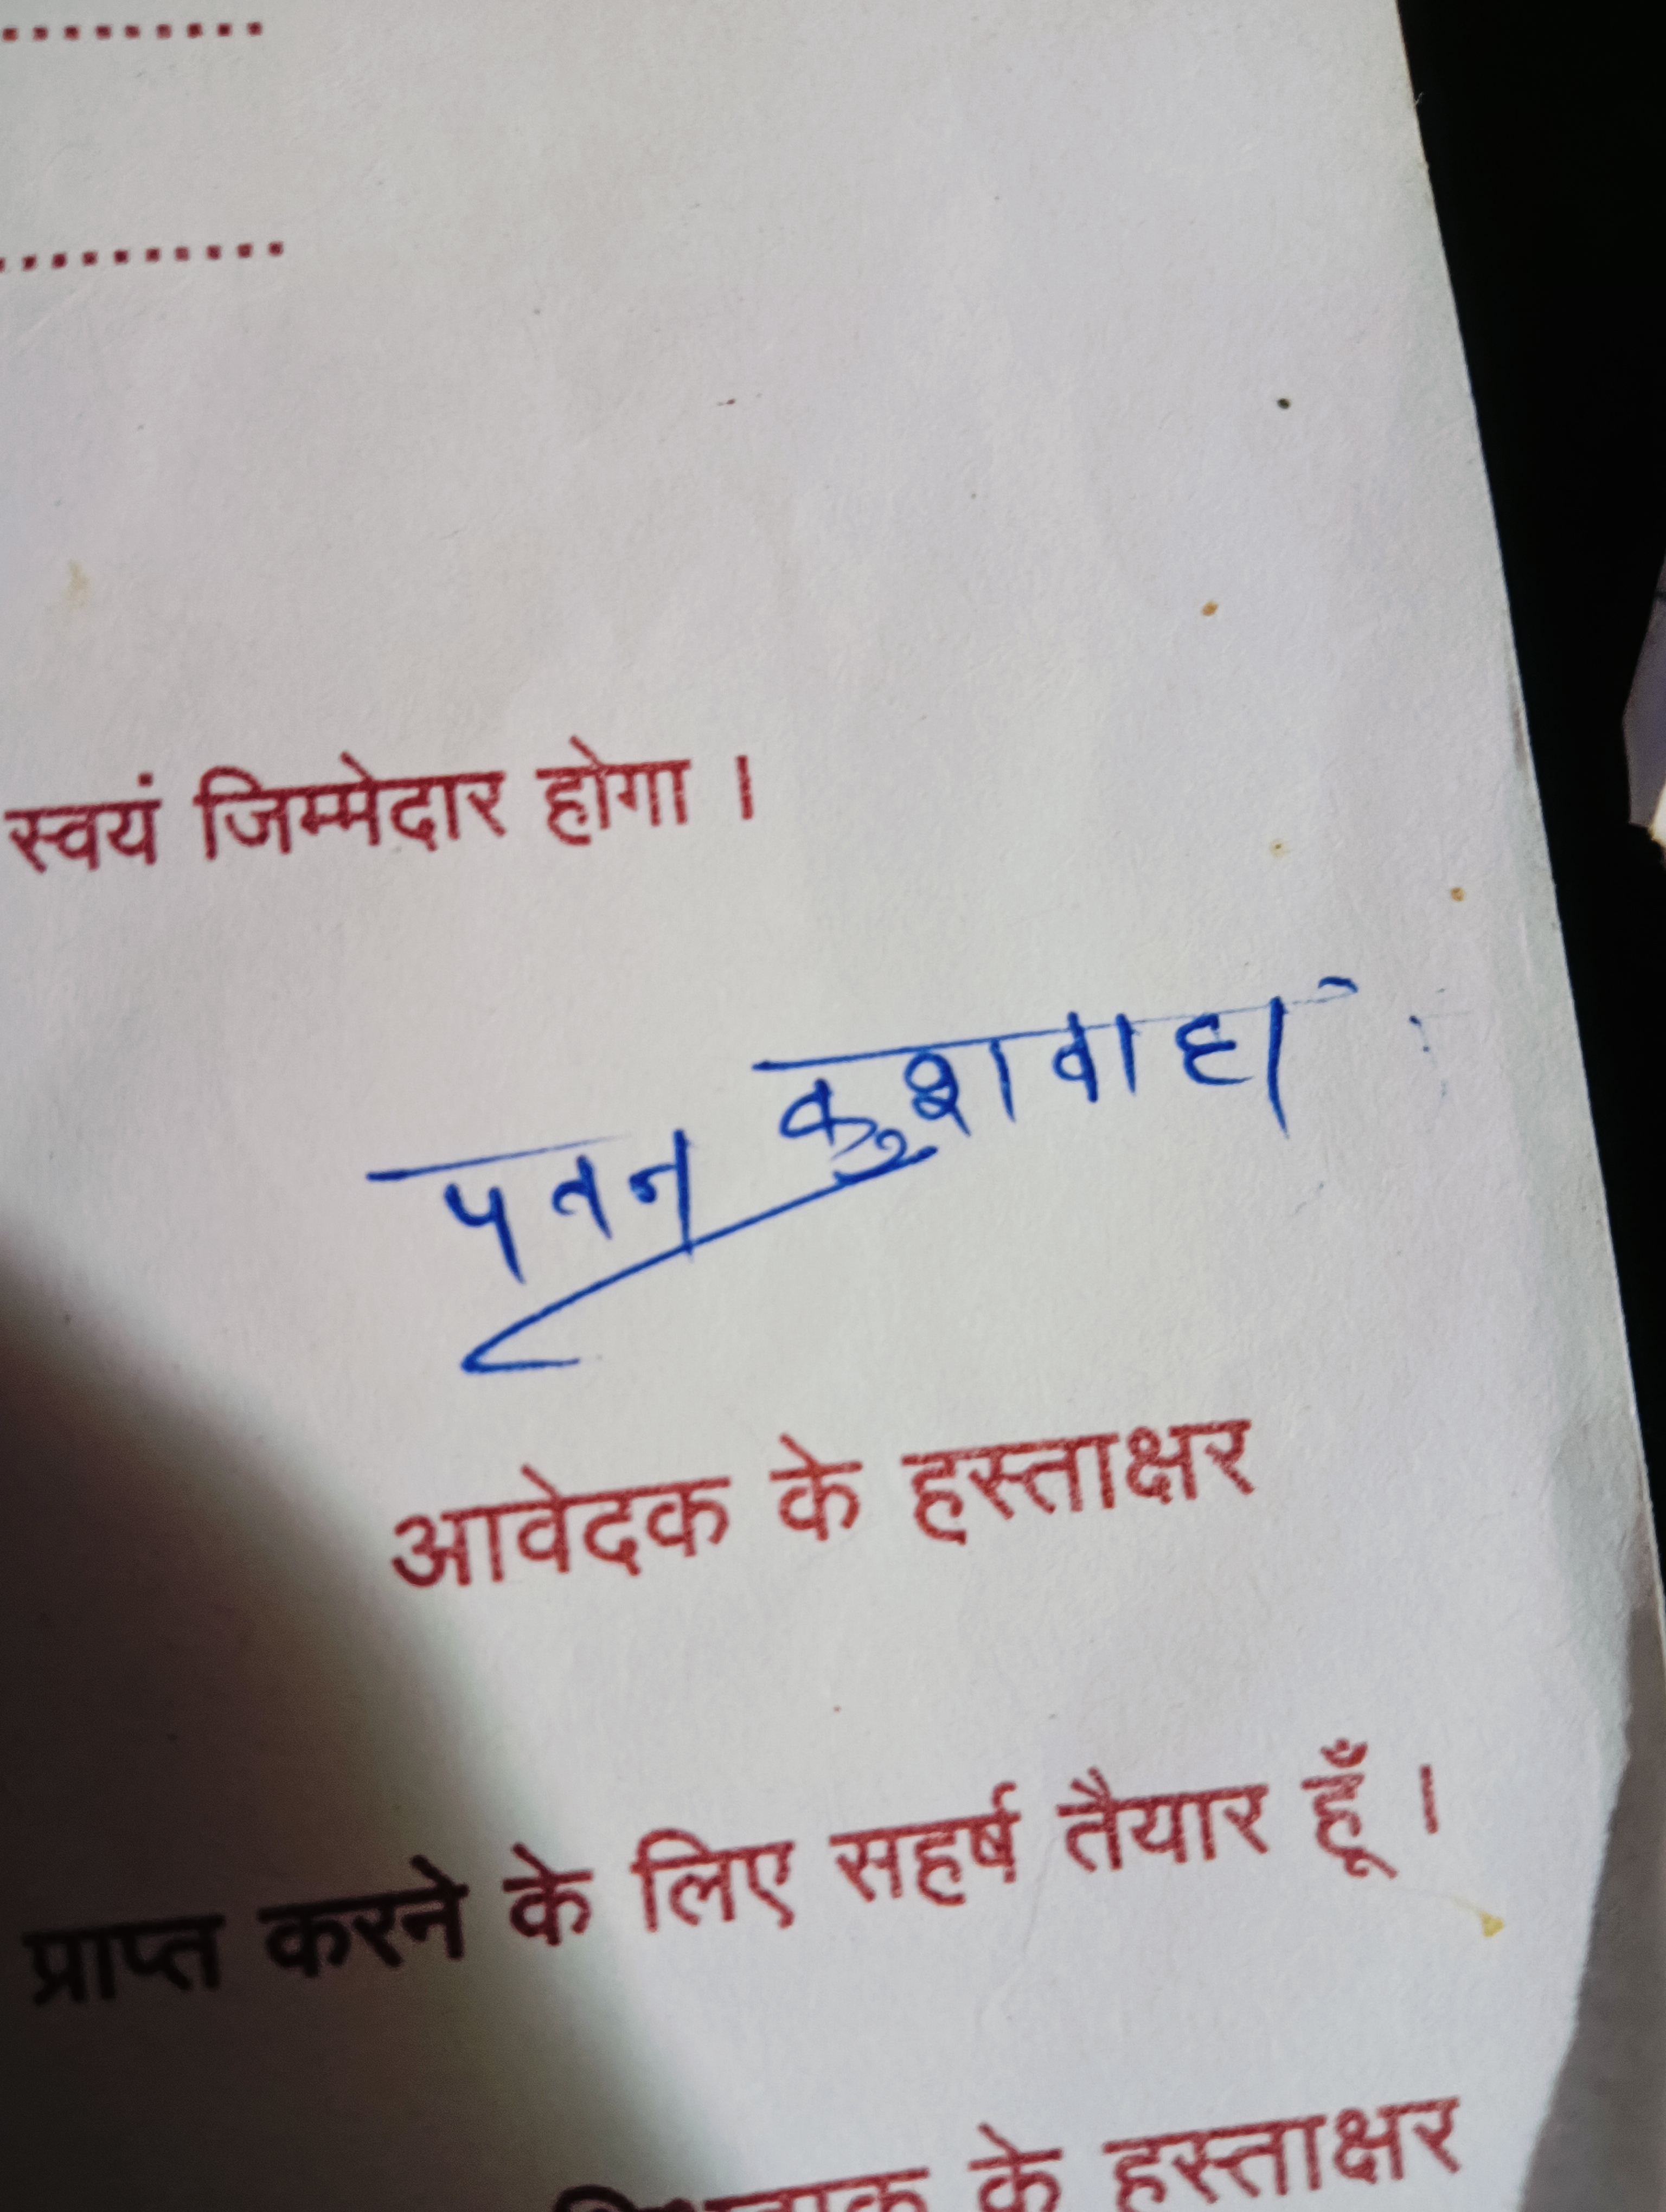 ..........
..........
स्वयं जिम्मेदार होगा ।
पतन कुशवाहा
आवेदक के हस्ताक्षर
प्राप्त करने के लिए सहर्ष तैयार हूँ ।
के हस्ताक्षर